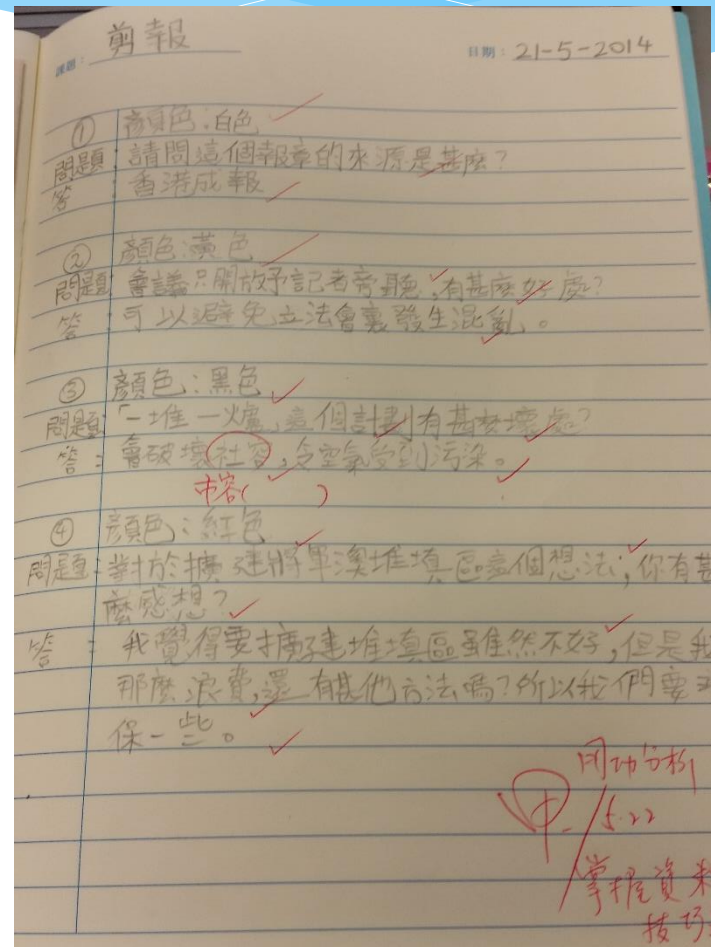 課題：剪報
日期：21-5-2014
① 顏色：白色
問題：請問這個報章的來源是甚麼？
答：香港成報
② 顏色：黃色
問題：會議只開放予記者旁聽，有甚麼好處？
答：可以避免立法會裏發生混亂。
③ 顏色：黑色
問題：「一堆一爐」這個計劃有甚麼壞處？
答：會破壞社容，令空氣受到污染。
市容( )
④ 顏色：紅色
問題：對於擴建將軍澳堆填區這個想法，你有甚
麼感想？
答：我覺得要擴建堆填區雖然不好，但是我
那麼浪費，還有其他方法嗎？所以我們要
保一些。
用功分析
甲- 5.22
掌握資料
技巧